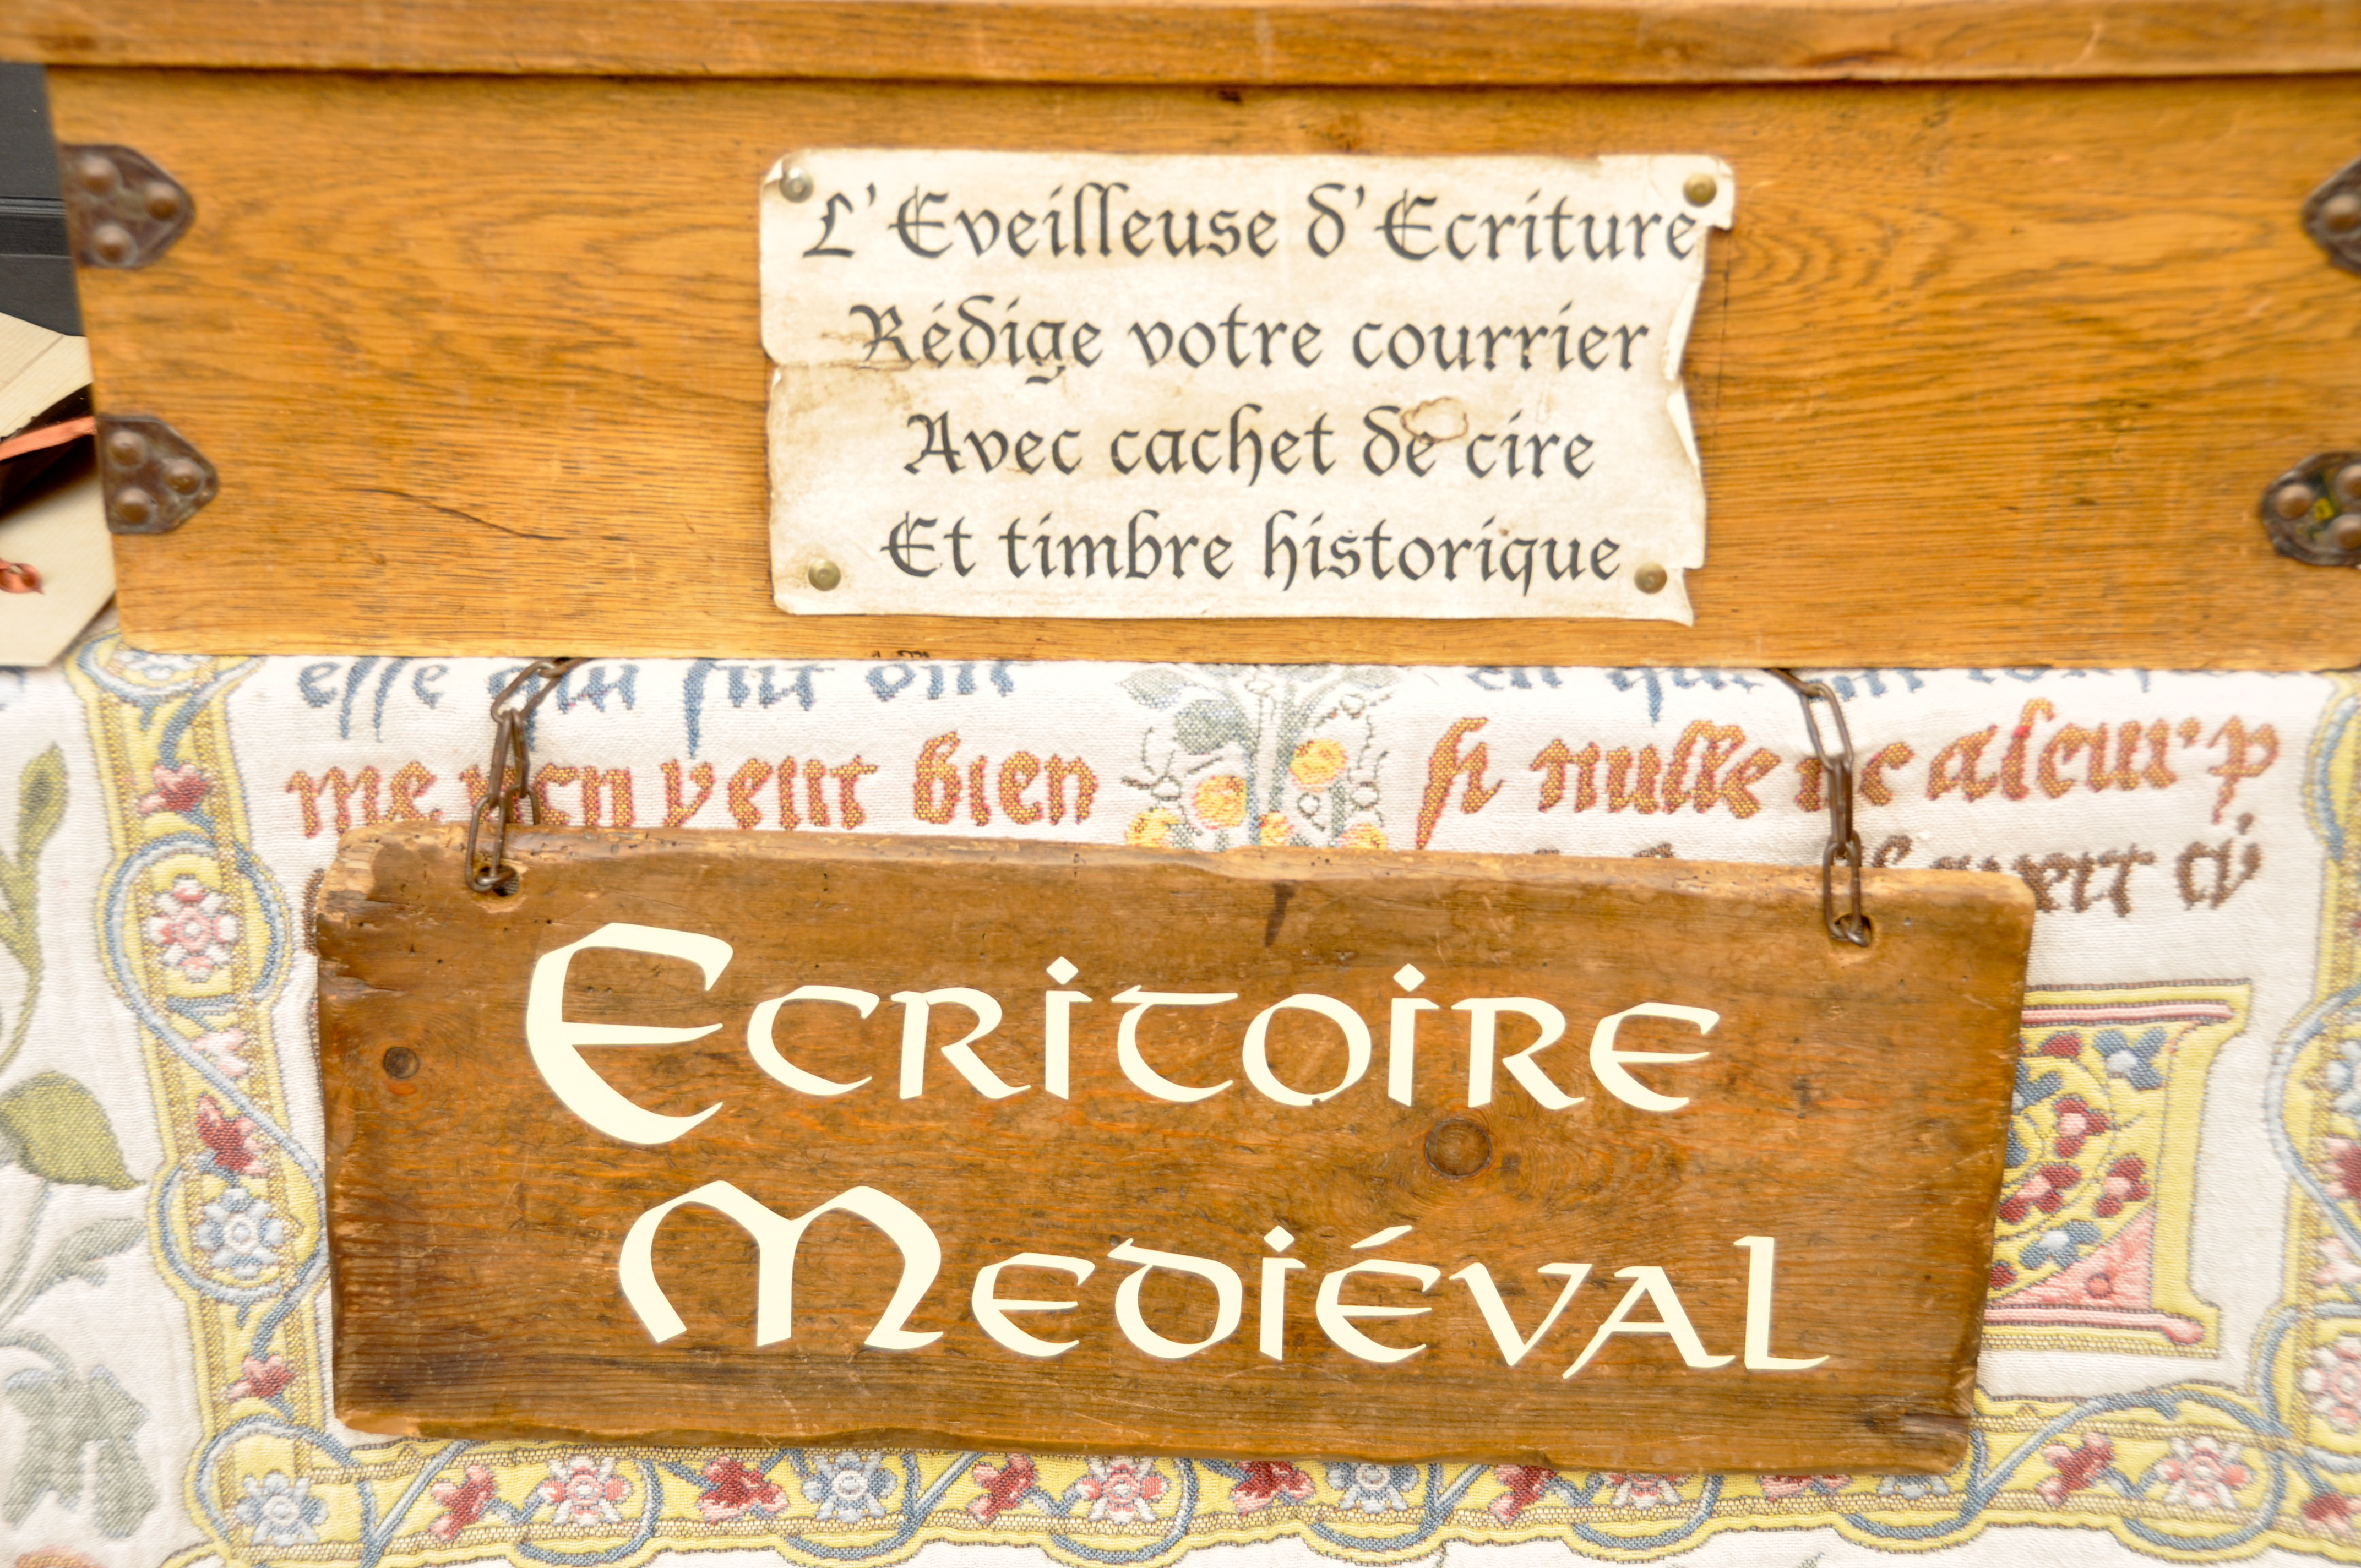 L'Eveilleuse d'Ecriture
Rédige votre courrier
Avec cachet de cire
Et timbre historique
me veut bien
si nulle
Ecritoire
Mediéval